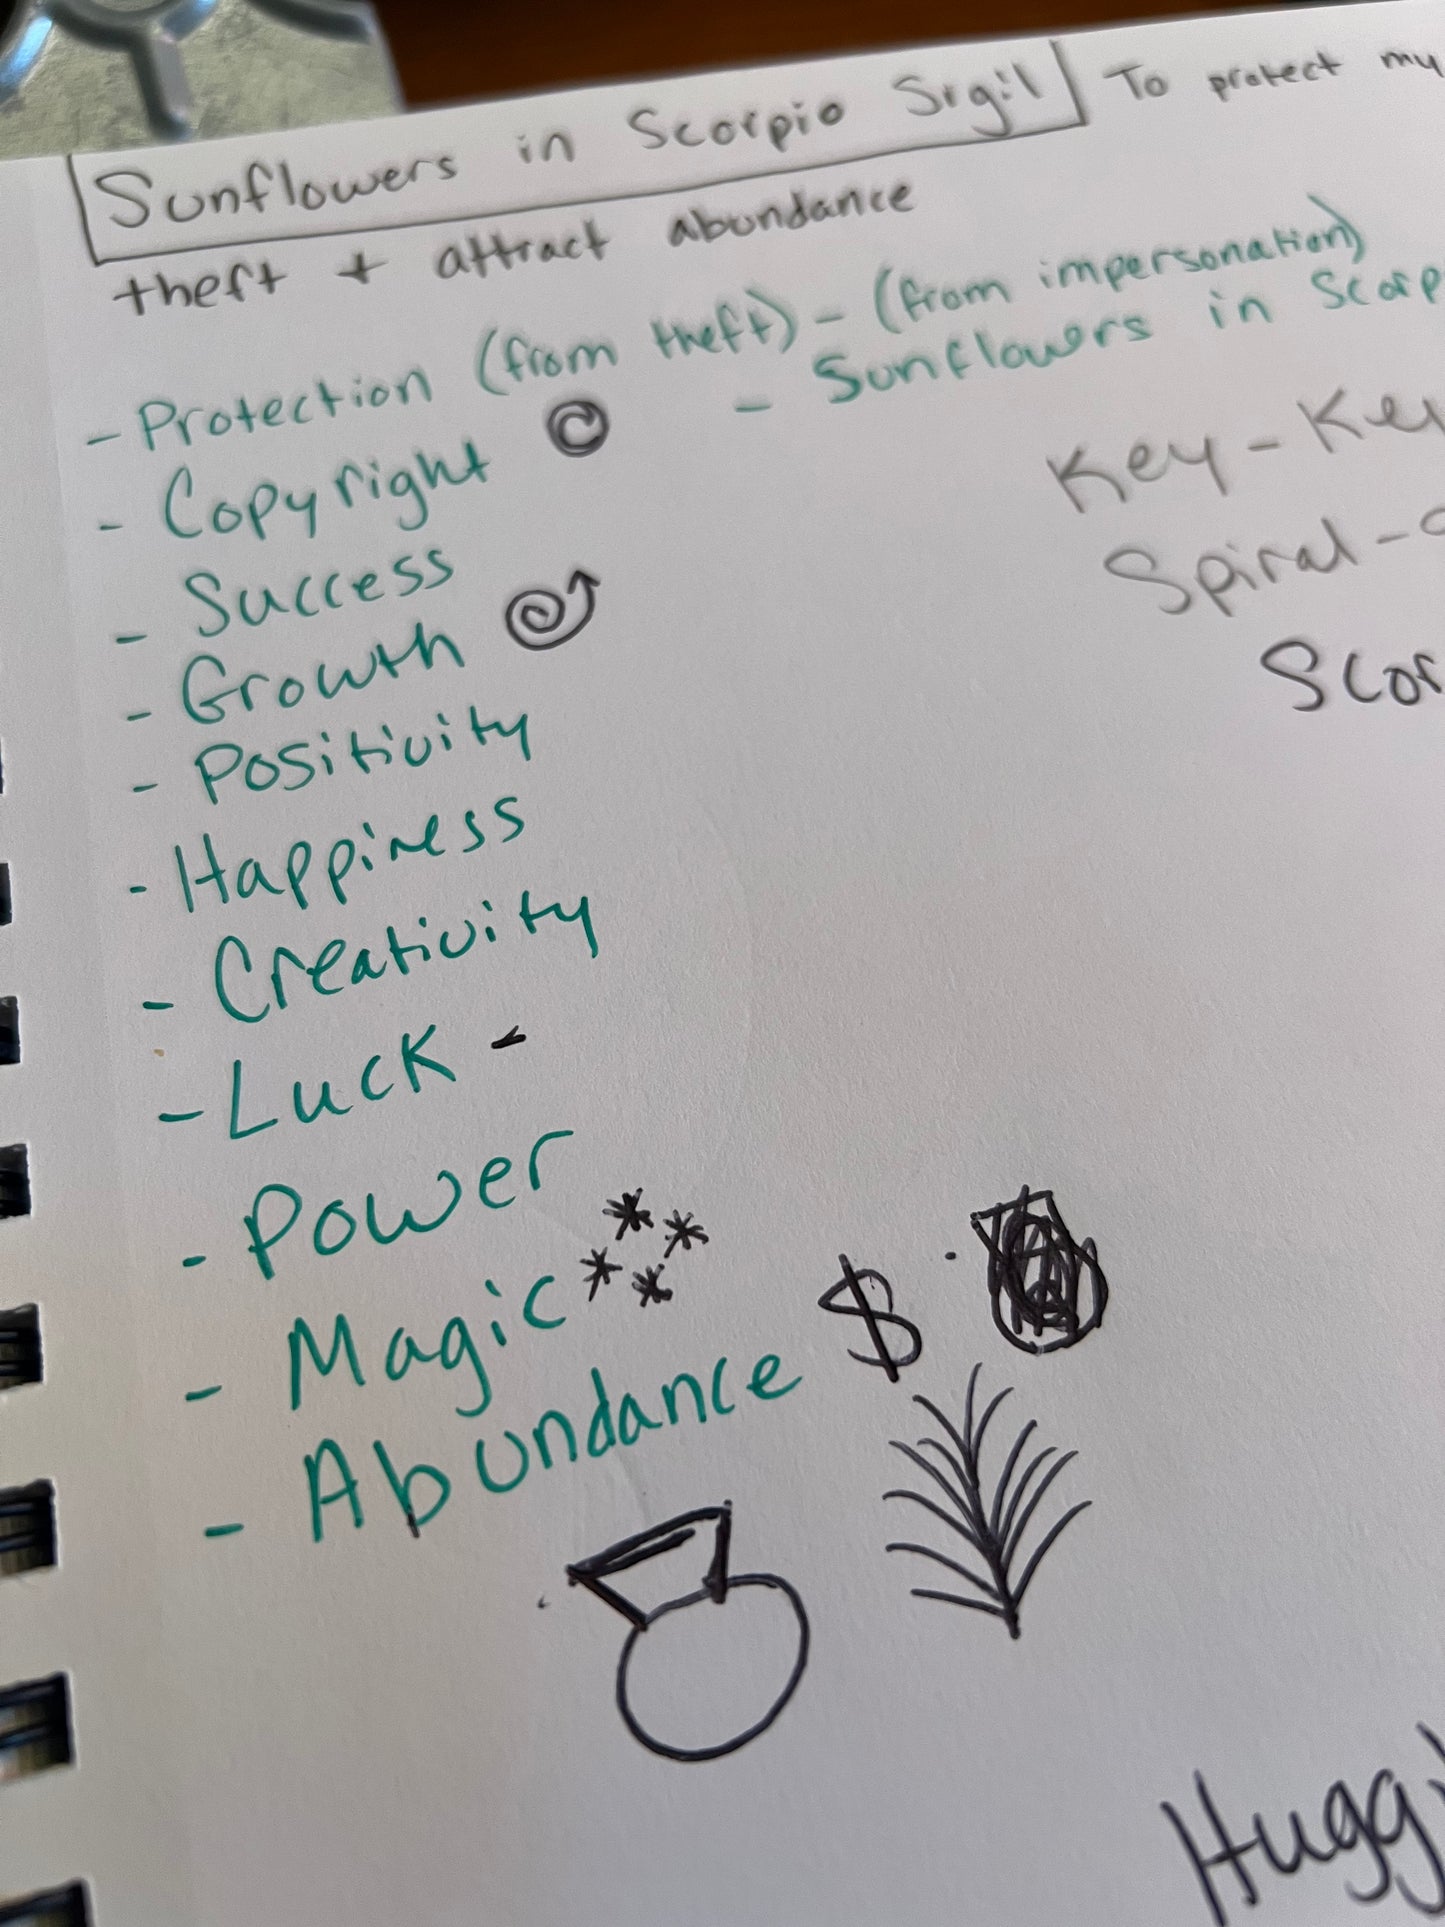 Sunflowers in Scorpio Srgil To protect my
theft + attract abundance
- Protection (from theft) - (from impersonation)
- Copyright © - Sunflowers in Scorp
- Success
- Growth
- Positivity
- Happiness
- Creativity
- Luck -
- Power
- Magic
- Abundance $
Key - Key
Spiral -
Scor
Huggy